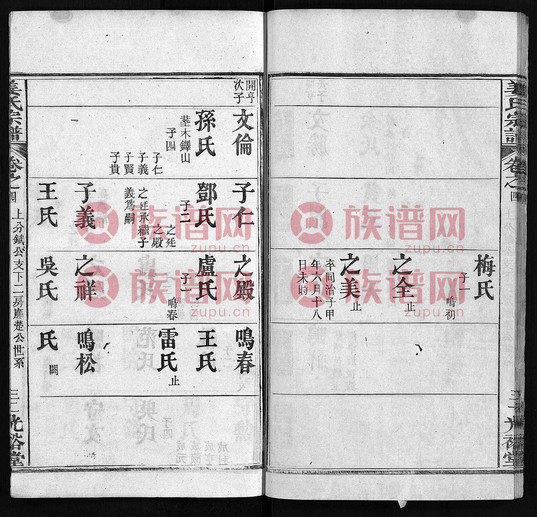 姜氏宗譜
卷之四
三一
光裕堂
梅氏
子一
鳴初
之全
止
之美
止
卒同治子甲
年八月十八
日未時
開亨
次子
文倫
孫氏
塟木鐸山
子四
子仁
子義
子賢
子貴
子仁
鄧氏
子三
之殿
之廷
之廷承繼子
義爲嗣
子義
王氏
之殿
盧氏
子一
鳴春
之祥
吳氏
鳴春
王氏
雷氏
止
鳴松
氏
闕
姜氏宗譜
卷之四
上分鉞公支下二房應楚公世系
三二
光裕堂
族谱网
zupu.cn